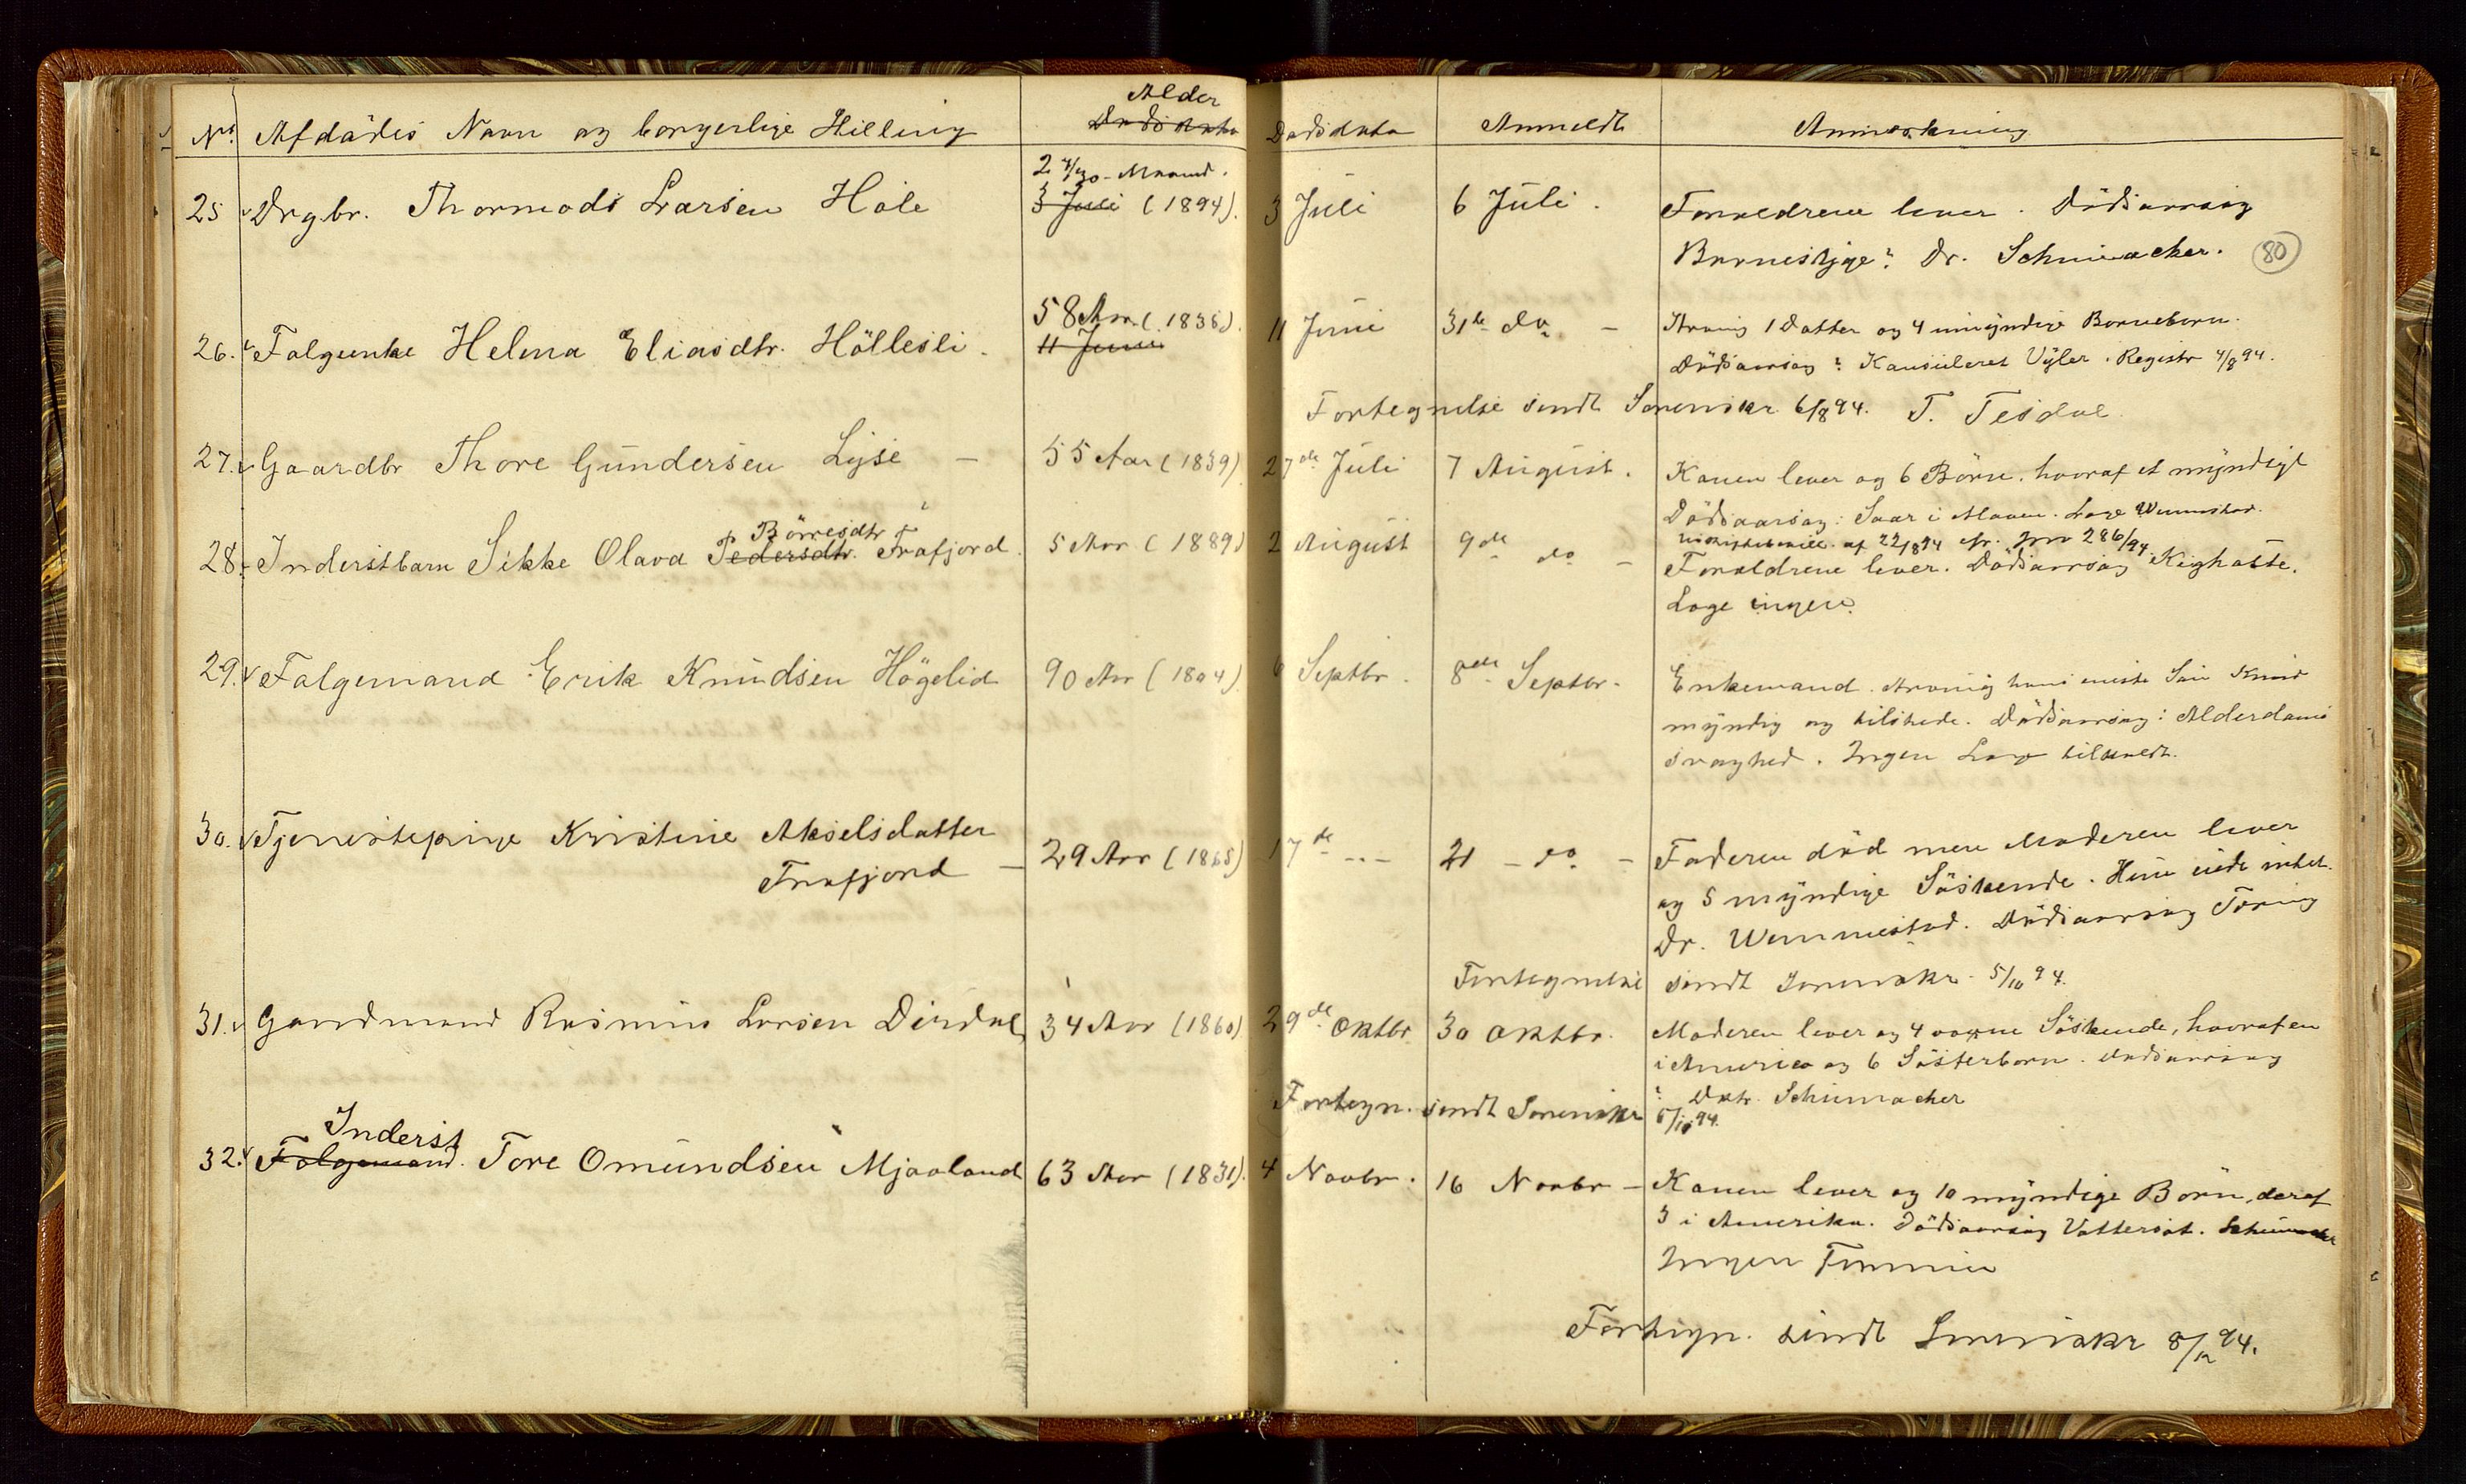 Alder
No. Afdødes Navn og borgerlige Stilling Dødsdato Dødsdato Anmeldt Anmærkning
2 4/30 Maaned.
25 Drgbr. Thormods Larsen Hole 3 Juli (1894). 3 Juli 6 Juli. Forældrene lever. Dödsaarsag
Barnesyge? Dr. Schumacher. 80
58 Aar (1836).
26. Folgeenke Helena Eliasdtr. Höllesli. 11 Juni 11 Juni 31te do – Arving 1 Datter og 4 umyndige Borneborn.
Dödsaarsag? Konsuleret Vyler. Registr 4/8 94.
Fortegnelse sendt Sorenskr. 6/8 94. T. Tesdal
27. Gaardbr Thore Gundersen Lyse – 55 Aar (1839) 27de Juli 7 August. Konen lever og 6 Börn, hvoraf et myndigt
Dödsaarsag: Saar i Maven. Læge Wennestad.
af 22/8 94 cfr. Jnr 286/94.
Börresdtr
28. Inderstbarn Sikke Olava Pedersdtr. Frafjord. 5 Aar (1889) 2 August 9de do – Forældrene lever. Dödsaarsag Kighoste.
Læge ingen.
29. Folgemand Erik Knudsen Högelid 90 Aar (1804) 6 Septbr. 8de Septbr. Enkemand. Arving hans eneste Sön Knud
myndig og tilstede. Dödsaarsag: Alderdoms
svaghed. Ingen Læge tilkaldt.
30. Tjenestepige Kristine Akselsdatter
Frafjord – 29 Aar (1865) 17de – 21 – do – Faderen död men Moderen lever
og 5 myndige Söskende. Hun eiede intet.
Dr. Wennestad. Dödsaarsag Tæring
Fortegnelse sendt Sorenskr. 5/10 94.
31. Gaardmand Rasmus Larsen Dirdal 34 Aar (1860) 29de Oktbr 30 Oktbr. Moderen lever og 4 voxne Söskende, hvoraf en
i America og 6 Sösterborn. Dödsaarsag
? Doktr. Schumacher
Fortegn. sendt Sorenskr 94.
Inderst
32. Folgemand. Tore Omundsen Mjaaland 63 Aar (1831). 4 Novbr. 16 Novbr – Konen lever og 10 myndige Börn, deraf
3 i Amerika. Dödsaarsag Vattersot. Schumacher
Ingen Formue
Fortegn. sendt Sorenskr 8/12 94.